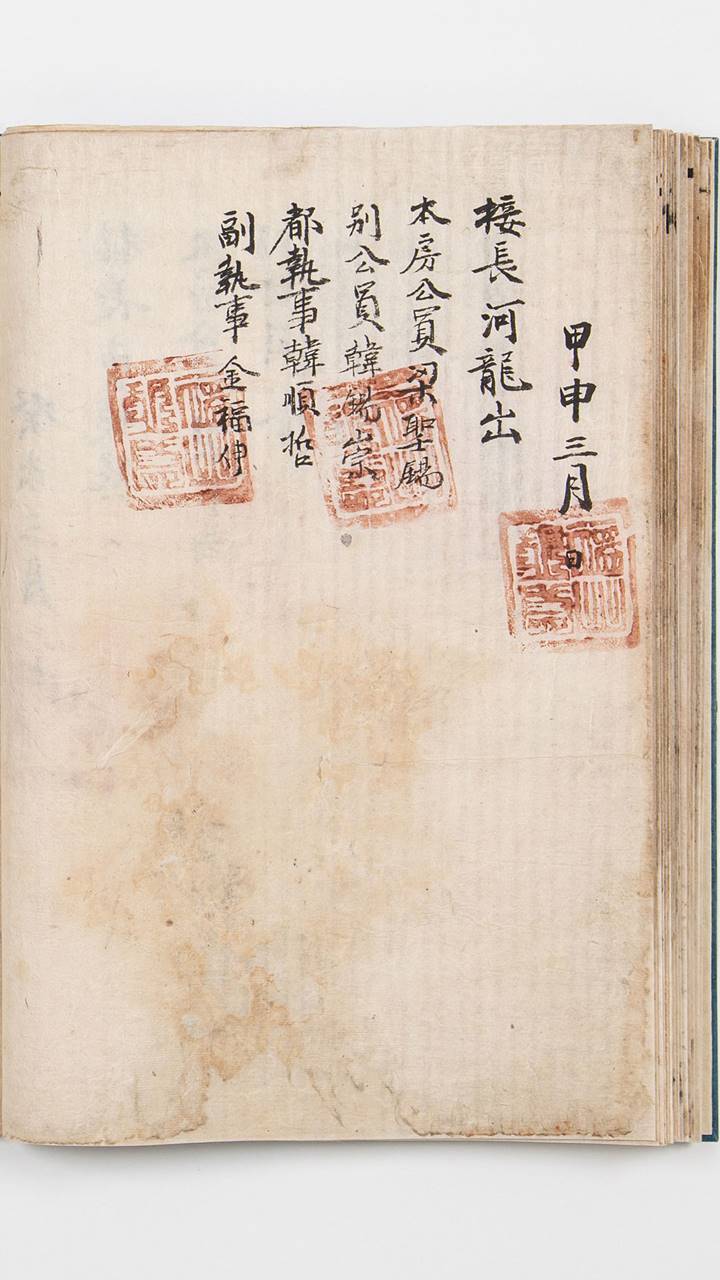 甲申三月 日
接長河龍出
本房公員梁聖錫
別公員韓錫崇
都執事韓順哲
副執事金福伊